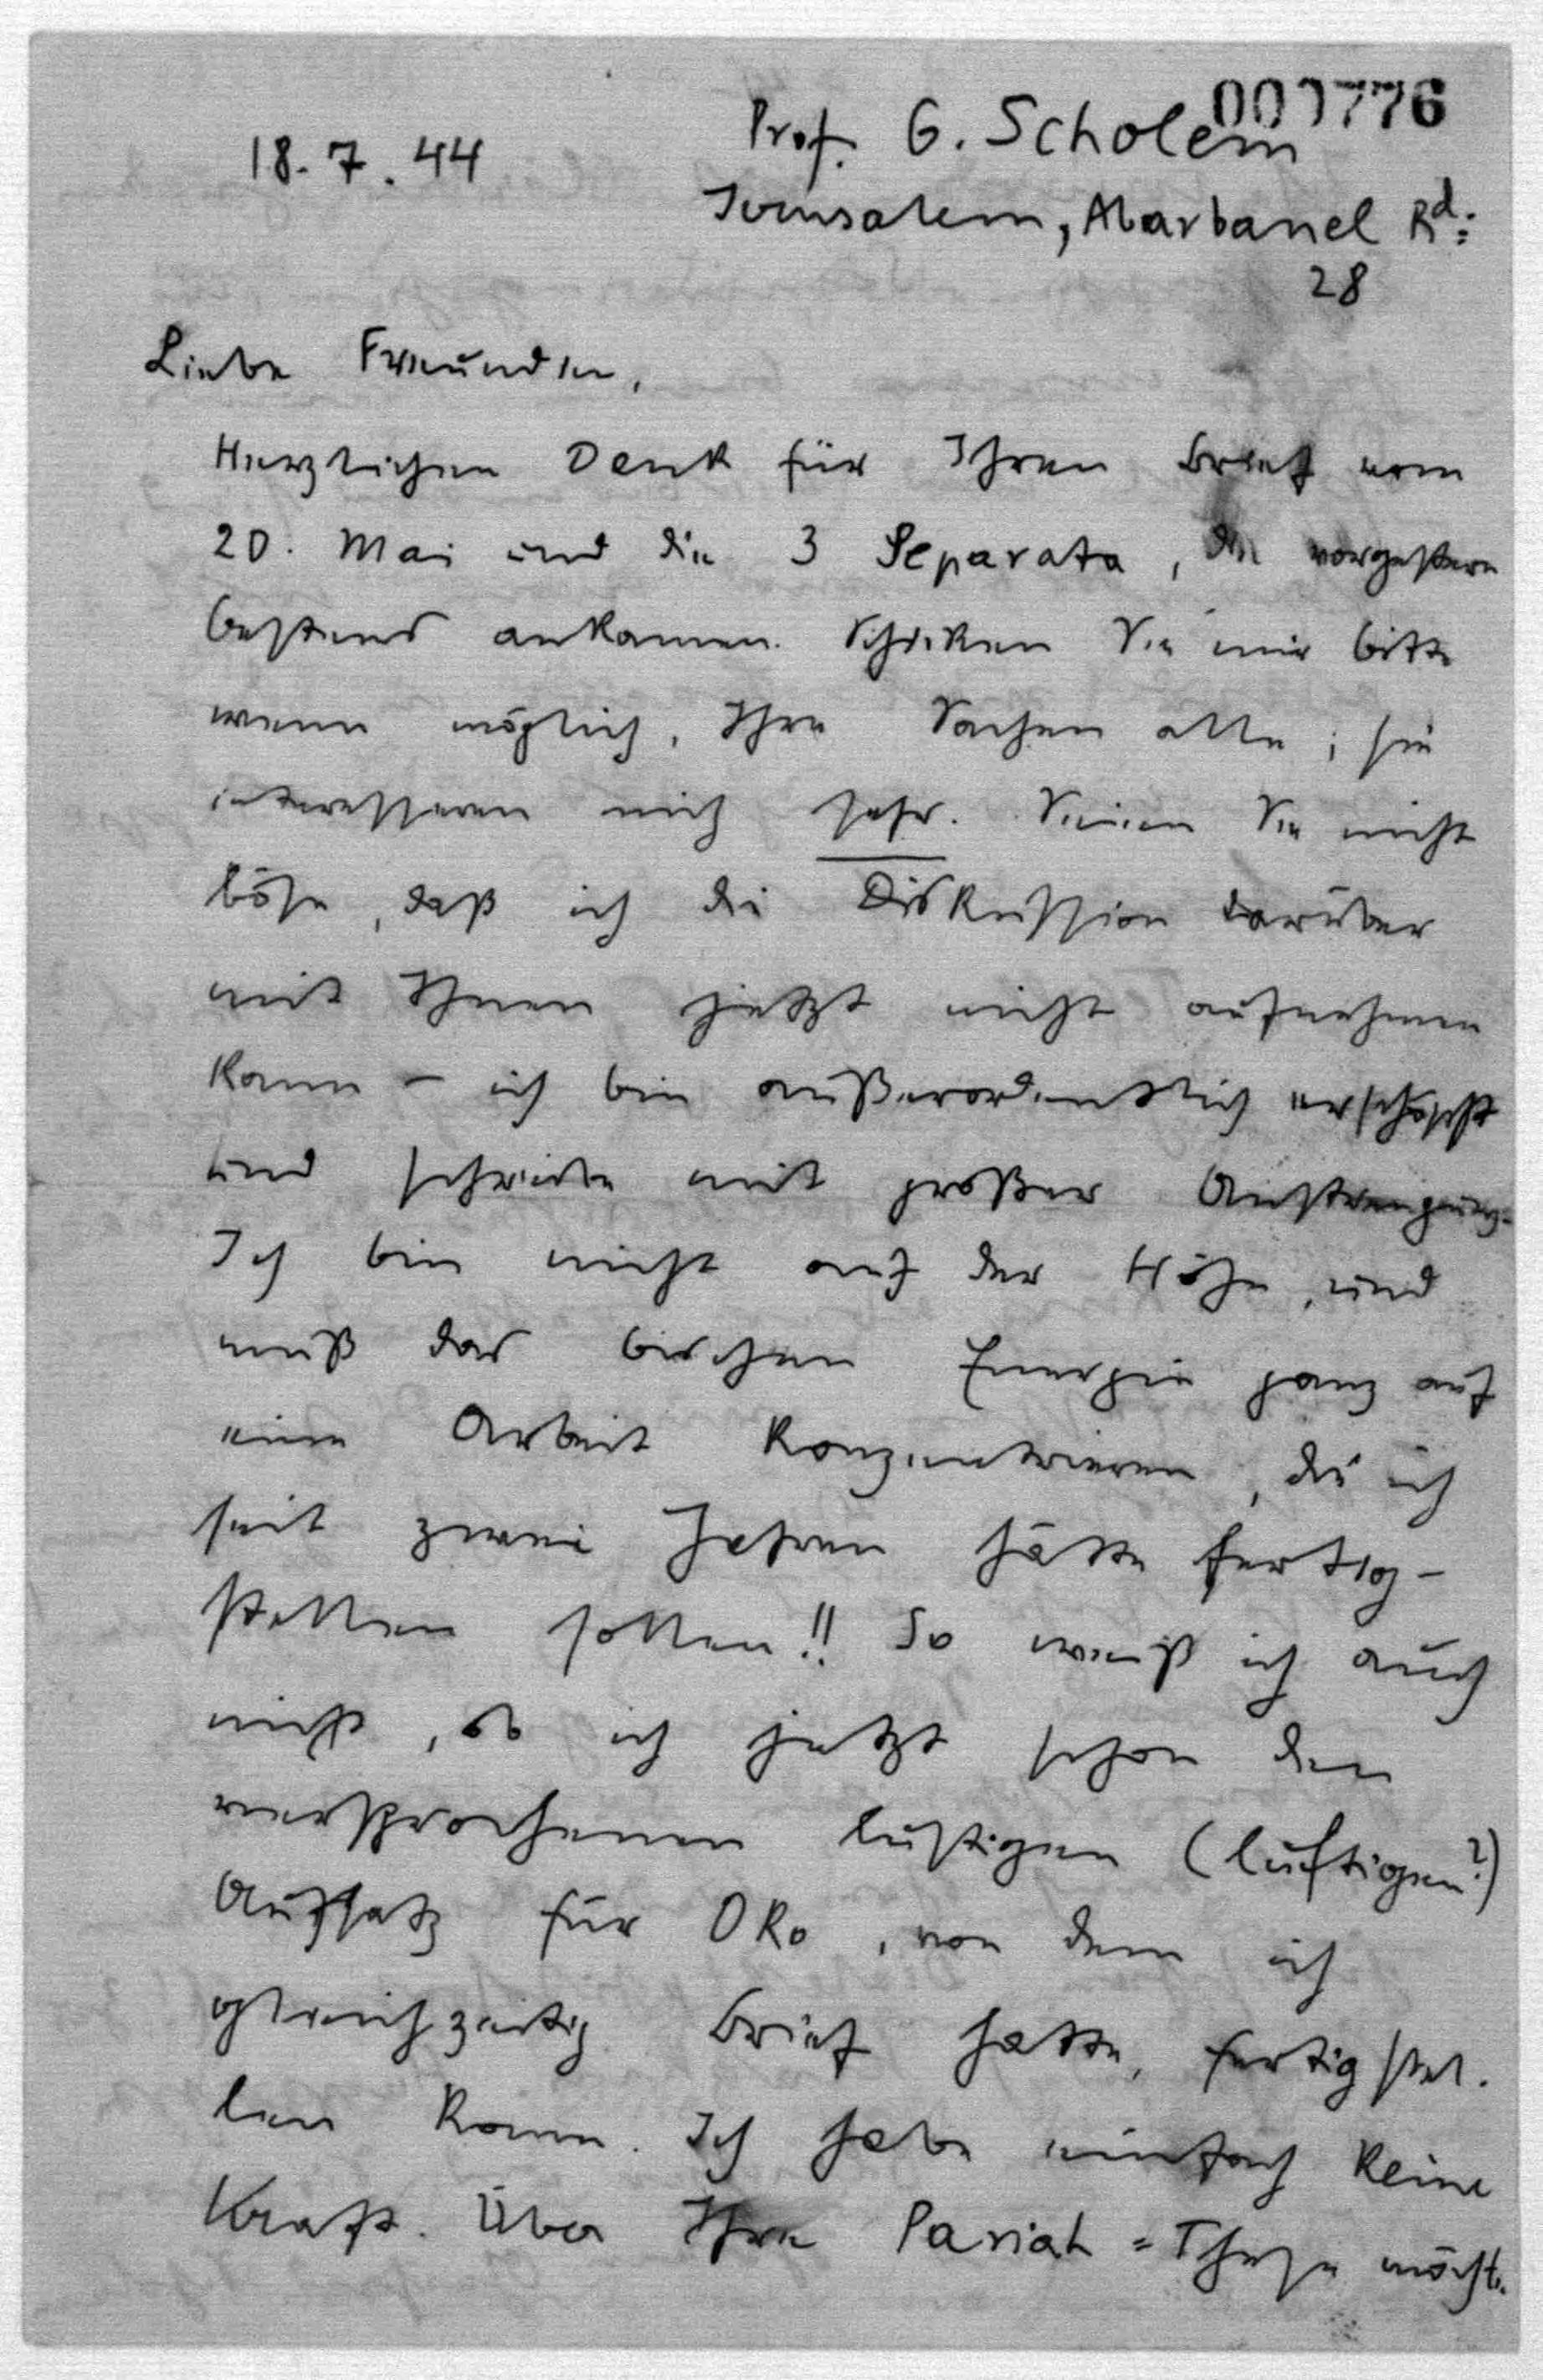 000776
18.7.44
Prof. G. Scholem
Jerusalem, Abarbanel Rd:
28
Liebe Freundin,
Herzlichen Dank für Ihren Brief vom
20. Mai und die 3 Separata, die vorgestern
bestens ankamen. Schicken Sie mir bitte
wenn möglich, Ihre Sachen alle; sie
interessieren mich sehr. Seien Sie nicht
böse, daß ich die Diskussion darüber
mit Ihnen jetzt nicht aufnehmen
kann – ich bin außerordentlich erschöpft
und schreibe mit großer Anstrengung.
Ich bin nicht auf der Höhe, und
muß das bischen Energie ganz auf
eine Arbeit konzentrieren, die ich
seit zwei Jahren hätte fertig-
stellen sollen!! So weiß ich auch
nicht, ob ich jetzt schon den
versprochenen lustigen (luftigen?)
Aufsatz für Oko, von dem ich
gleichzeitig Brief hatte, fertigstel-
len kann. Ich habe einfach keine
Kraft. Über Ihre Pariah=These möchte